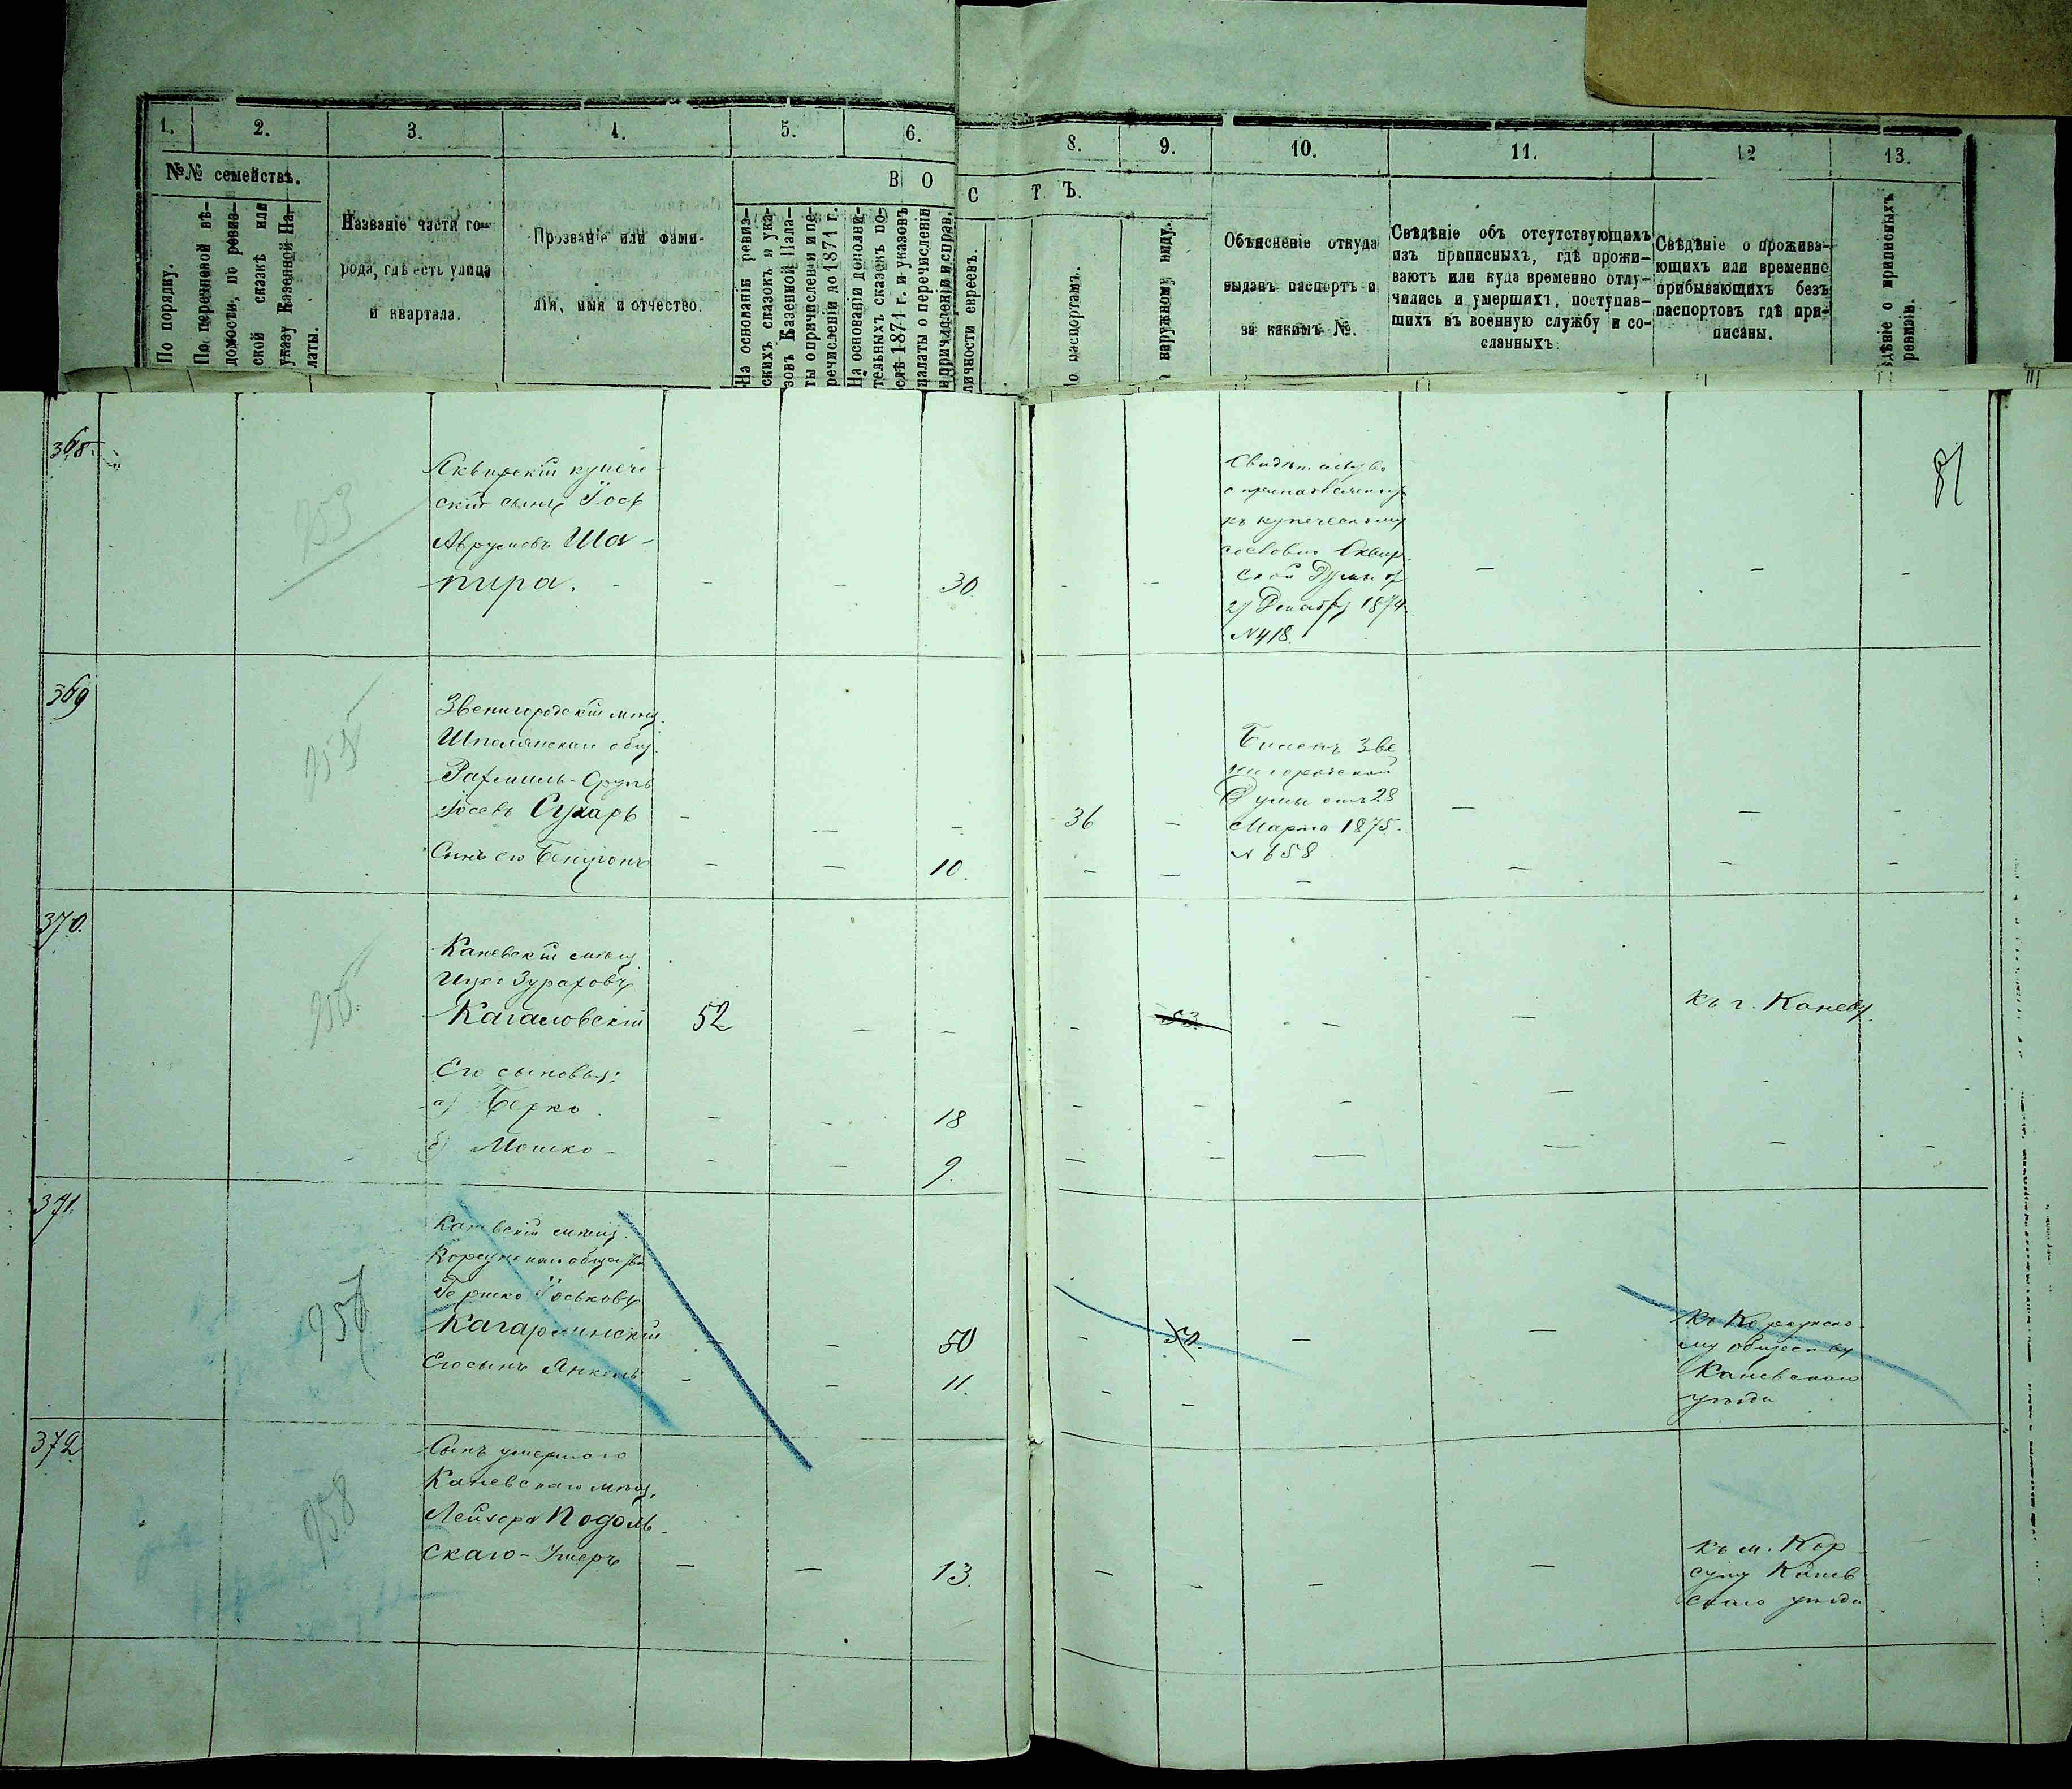 1. 2. 3. 4. 5. 6. 8. 9. 10. 11. 12 13.
№№ семействъ.
В О С Т Ъ.
По порядку.
По перечневой вѣ-
домости, по ревиз-
ской сказкѣ или
указу Казенной Па-
латы.
Названіе части го-
рода, гдѣ есть улица
и квартала.
Прозваніе или фами-
лія, имя и отчество.
На основаніи ревиз-
скихъ сказокъ и ука-
зовъ Казенной Пала-
ты о причисленіи и пе-
речисленіи до 1871 г.
На основаніи дополни-
тельныхъ сказокъ по-
слѣ 1871 г. и указовъ
палаты о перечисленіи
и причисленіи и справ.
личности евреевъ.
о паспортамъ.
наружному виду.
Объясненіе откуда
выданъ паспортъ и
за какимъ №.
Свѣдѣніе объ отсутствующихъ
изъ приписныхъ, гдѣ прожи-
ваютъ или куда временно отлу-
чились и умершихъ, поступив-
шихъ въ военную службу и со-
сланныхъ.
Свѣдѣніе о прожива-
ющихъ или временно
прибывающихъ безъ
паспортовъ гдѣ при-
писаны.
дѣніе о приписныхъ
ревизіи.
81
368.
953
Сквирскій купече-
скій сынъ Іось
Аврумовъ Ша-
пира. - - - 30 - - - - -
Свидѣтельство
къ купеческому
сословію Сквир-
ской Думы от
27 Декабря 1874.
N 418.
369
955
Звенигородскій мѣщ.
Шполянскаго общ.
Рахмиль-Сруль
Іосевъ Сухарь - - - 36 - - - -
Сынъ его Бенціонъ - - 10. - - - - - -
Билетъ Зве
нигородской
Думы отъ 28
Марта 1875.
N 658
370.
956.
Каневскій мѣщ
Ицко Зураховъ
Кагаловскій 52 - - - 53. - -
къ г. Каневу.
Его сыновья:
а) Берко - - 18 - - - -
б) Мошко - - - 9. - - - - - -
371.
957
Каневскій мѣщ.
Корсунскаго общества
Гершко Іоськовъ
Кагарлинскій - - 50 - 50. - -
Его сынъ Янкель - - 11. - -
къ Корсунско-
му обществу
Каневскаго
уѣзда
372.
958
Сынъ умершаго
Каневскаго мѣщ.
Лейзора Подоль-
скаго - Ушеръ - - 13. - - - -
къ м. Кор-
суну Канев
скаго уѣзда